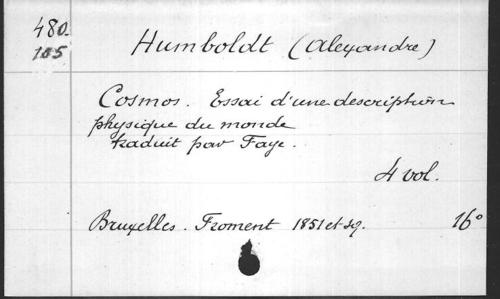 480.
105
Humboldt (Alexandre)
Cosmos. Essai d'une description
physique du monde
traduit par Faye.
4 vol.
Bruxelles. Froment 1851 et sq. 16°